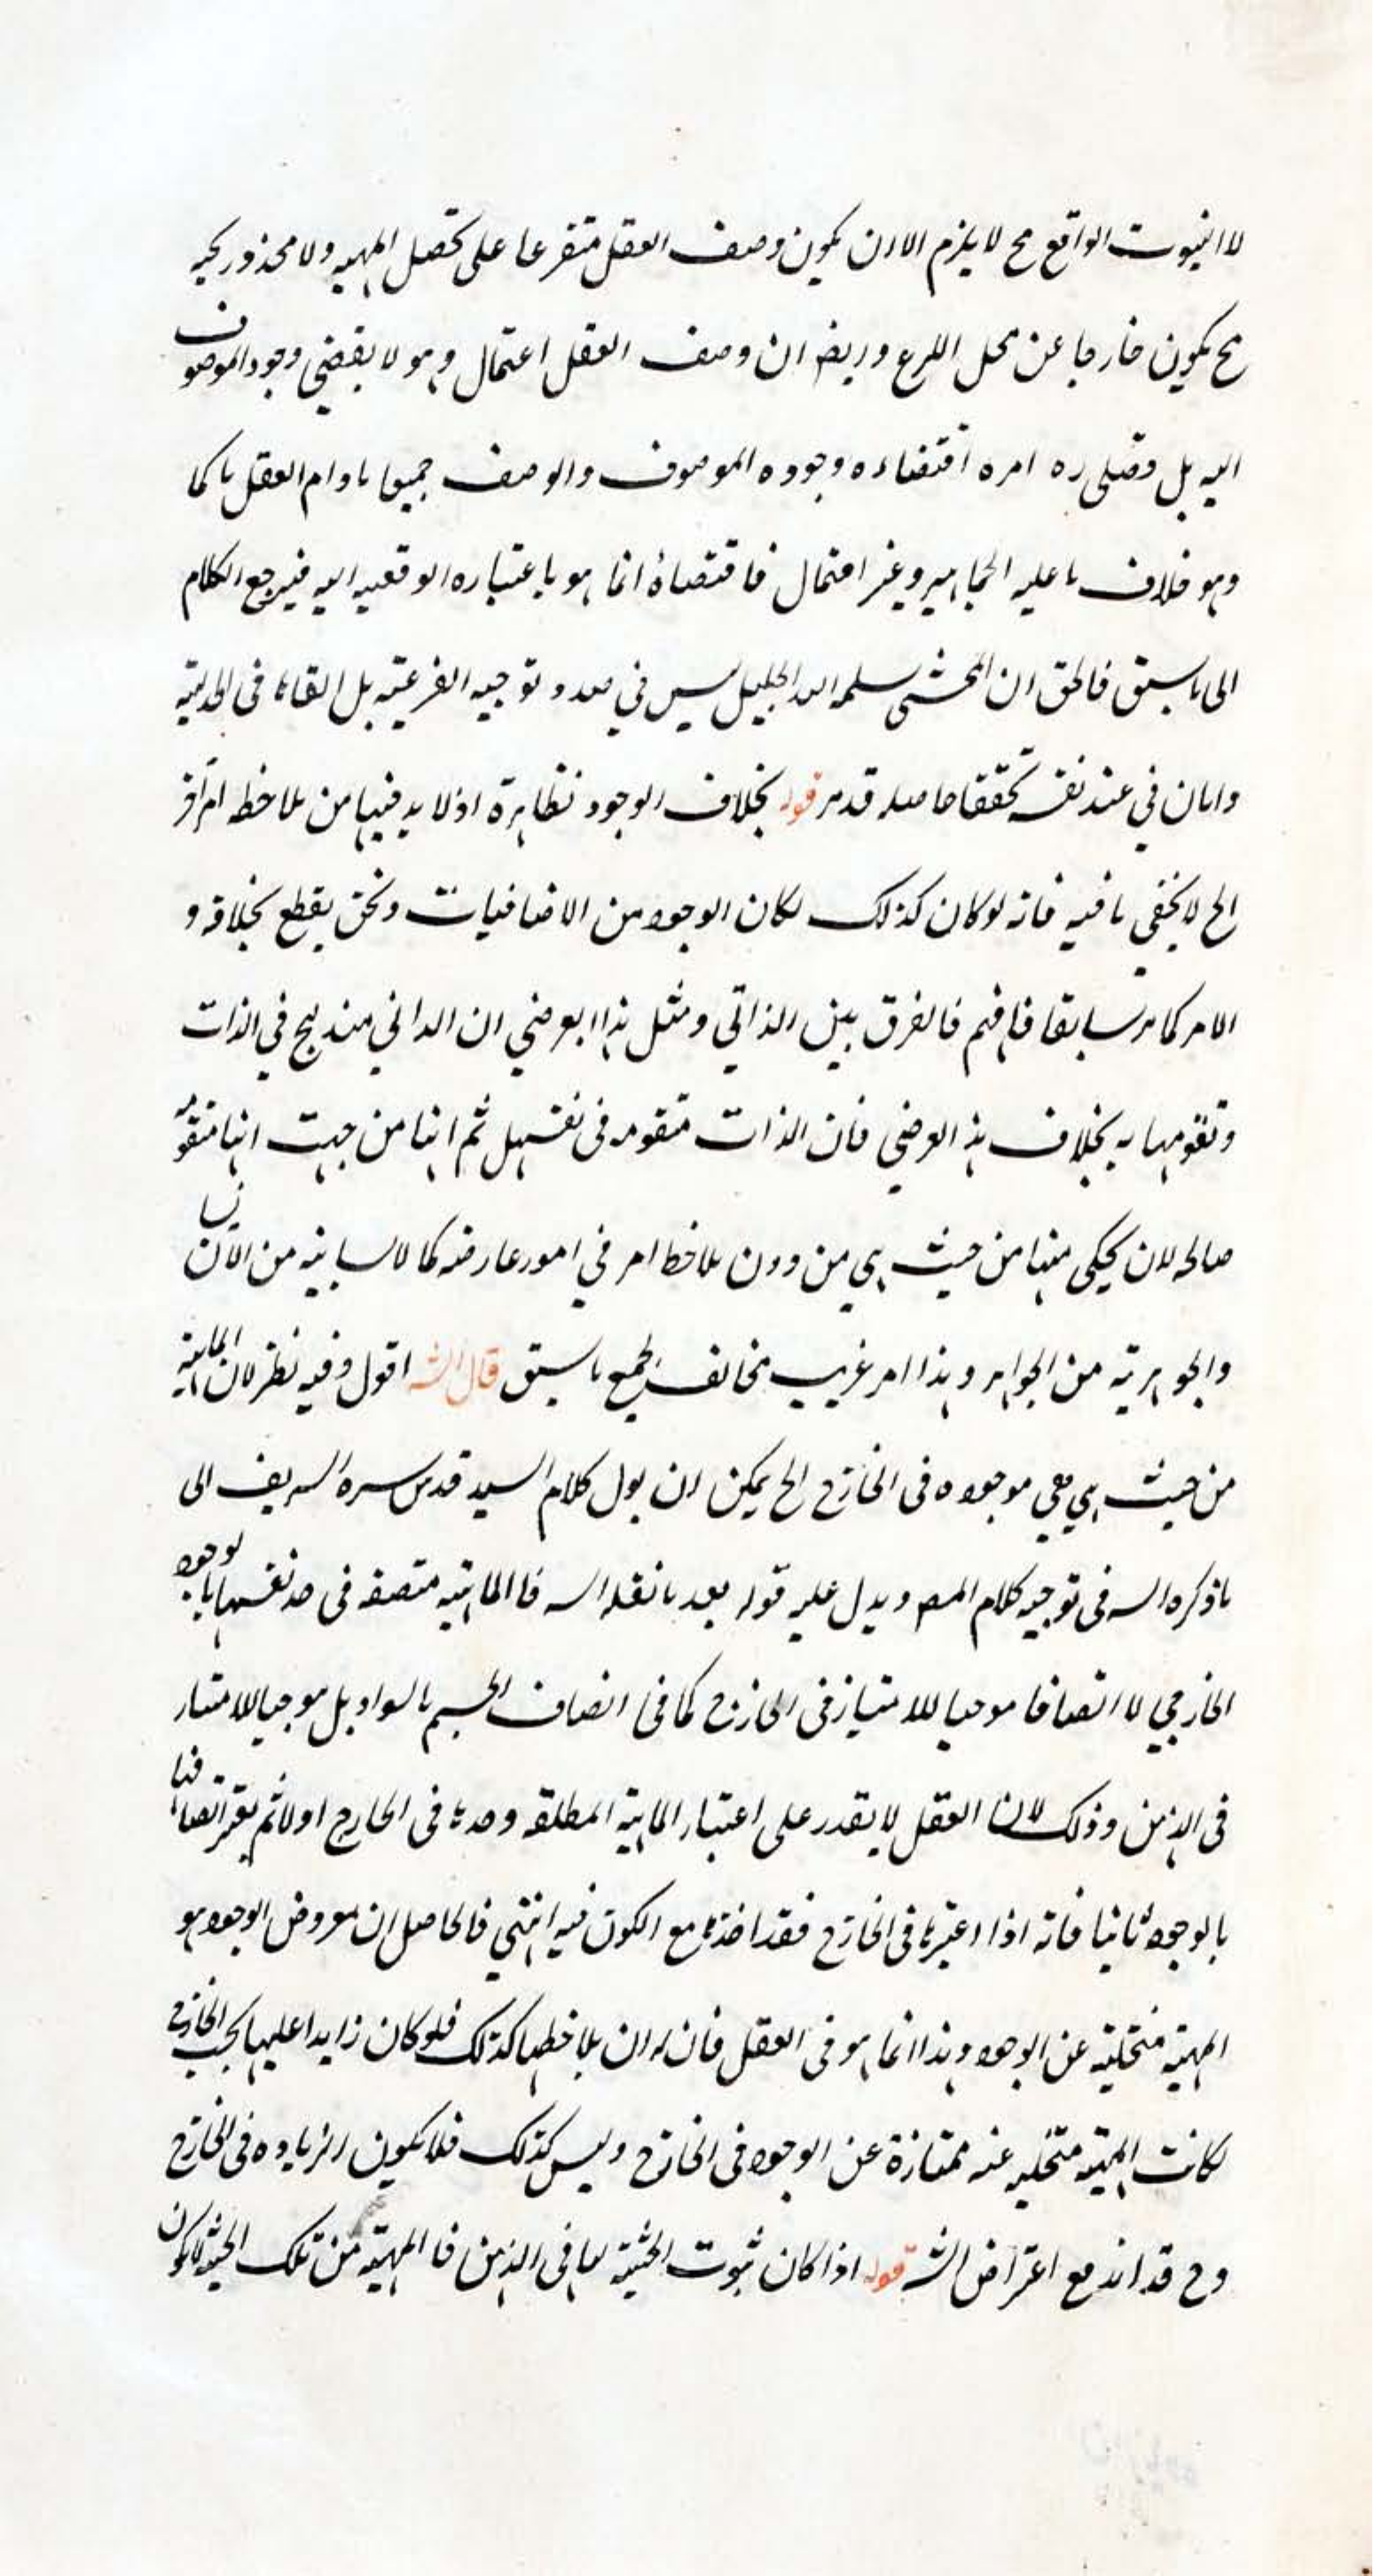 لا اثبوت الواقع مح لا يلزم الا ان يكون وصف العقل متفرعا على تحصل المهيه ولا محذور كجيه
مح يكون خارجا عن محل اللرع وايضا ان وصف العقل اعتمال وهو لا يقضى وجود الموصوف
اليه بل وصلى ره امره اقتضاءه وجوده الموصوف والوصف جميعا مادام العقل
وهو خلاف ما عليه الجماهير وغير اعتمال فاقتضاؤه انما هو باعتباره الوقعيه اليه فيرجع الكلام
الى ما سبق فالحق ان المحشى سلمه الله الجليل ليس في صدد توجيه الفرعيته بل القاءها فى
وامان في عند نفسه تحققا حاصله قد مر قوله بخلاف الوجود نظايرة اذ لا بد فيها من ملاحظه امر آخر
الخ لا يخفى ما فيه فانه لو كان كذلك لكان الوجود من الاضافيات ونحن يقطع بخلافه و
الامر كما مر سابقا فافهم فالفرق بين الذاتي ومثل هذا العرضي ان الداتي مندرج في الذات
وتقومها به بخلاف هذ العرضي فان الذات متقومه فى نفسها بل ثم انها من جهت انها متقومه
صالحه لان يحكى منها من حيث هي من دون ملاحظ امر في امور عارضه كالانسانيه من الانسان
والجوهريته من الجواهر وهذا امر غريب مخالف لجميع ما سبق قال الشه اقول وفيه نظر لان الماهيته
من حيث هي هي موجوده فى الخارج الخ يمكن ان يول كلام السيد قدس سره الشريف الى
ما ذكره الشه فى توجيه كلام المصه ويدل عليه قوله بعد ما نقله الشه فا الماهيته متصفه فى حد نفسها بالوجود
الخارجي لا اتصافا موجبا للامتياز فى الخارج كما فى اتصاف الجسم بالسواد بل موجبا للامتياز
فى الذهن وذلك لان العقل لا يقدر على اعتبار الماهية المطلقه وحدها فى الخارج اولا ثم يعتبر اتصافها
بالوجود ثانيا فانه اذا اعتبرها فى الخارج فقد اخذها مع الكون فيه انتهي فالحاصل ان معروض الوجود هو
المهيته متخليته عن الوجود وهذا انما هو فى العقل فان له ان يلاحظها كذلك فلو كان زايدا عليها بحسب الخارج
لكانت المهيته متخليه عنه ممتازة عن الوجود فى الخارج وليس كذلك فلا يكون الزياده فى الخارج
وح قد اندفع اعتراض الشه قوله اذا كان ثبوت الحيثيته لها فى الذهن فا المهيته من تلك الحيثيه لا يكون